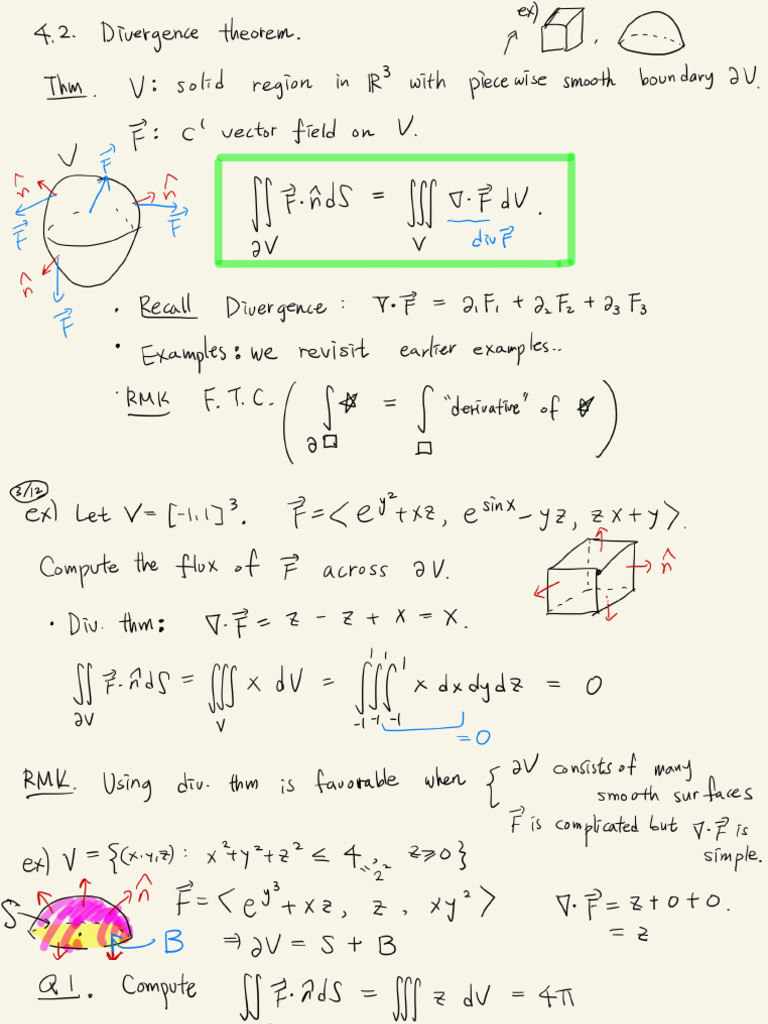 4.2. Divergence theorem. ex) ,
Thm. V: solid region in ℝ³ with piecewise smooth boundary ∂V.
F⃗: C¹ vector field on V.
V F⃗ n̂ n̂ F⃗ F⃗ n̂ F⃗
∬_∂V F⃗·n̂dS = ∭_V ∇·F⃗ dV.
div F⃗
· Recall Divergence: ∇·F⃗ = ∂₁F₁ + ∂₂F₂ + ∂₃F₃
· Examples: we revisit earlier examples..
· RMK F.T.C. ( ∫_∂□ ☆ = ∫_□ "derivative" of ☆ )
3/12
ex) Let V = [-1,1]³. F⃗ = <e^{y²}+xz, e^{sinx}-yz, zx+y>.
Compute the flux of F⃗ across ∂V. n̂
· Div. thm: ∇·F⃗ = z - z + x = x.
∬_∂V F⃗·n̂dS = ∭_V x dV = ∫_{-1}^{1}∫_{-1}^{1}∫_{-1}^{1} x dxdydz = 0
=0
RMK. Using div. thm is favorable when { ∂V consists of many
smooth surfaces
F⃗ is complicated but ∇·F⃗ is
simple.
ex) V = {(x,y,z): x²+y²+z² ≤ 4, z≥0}
"2²
S n̂ F⃗ = <e^{y³}+xz, z, xy²> ∇·F⃗ = z+0+0.
= z
B ⇒ ∂V = S + B
Q1. Compute ∬ F⃗·n̂dS = ∭ z dV = 4π